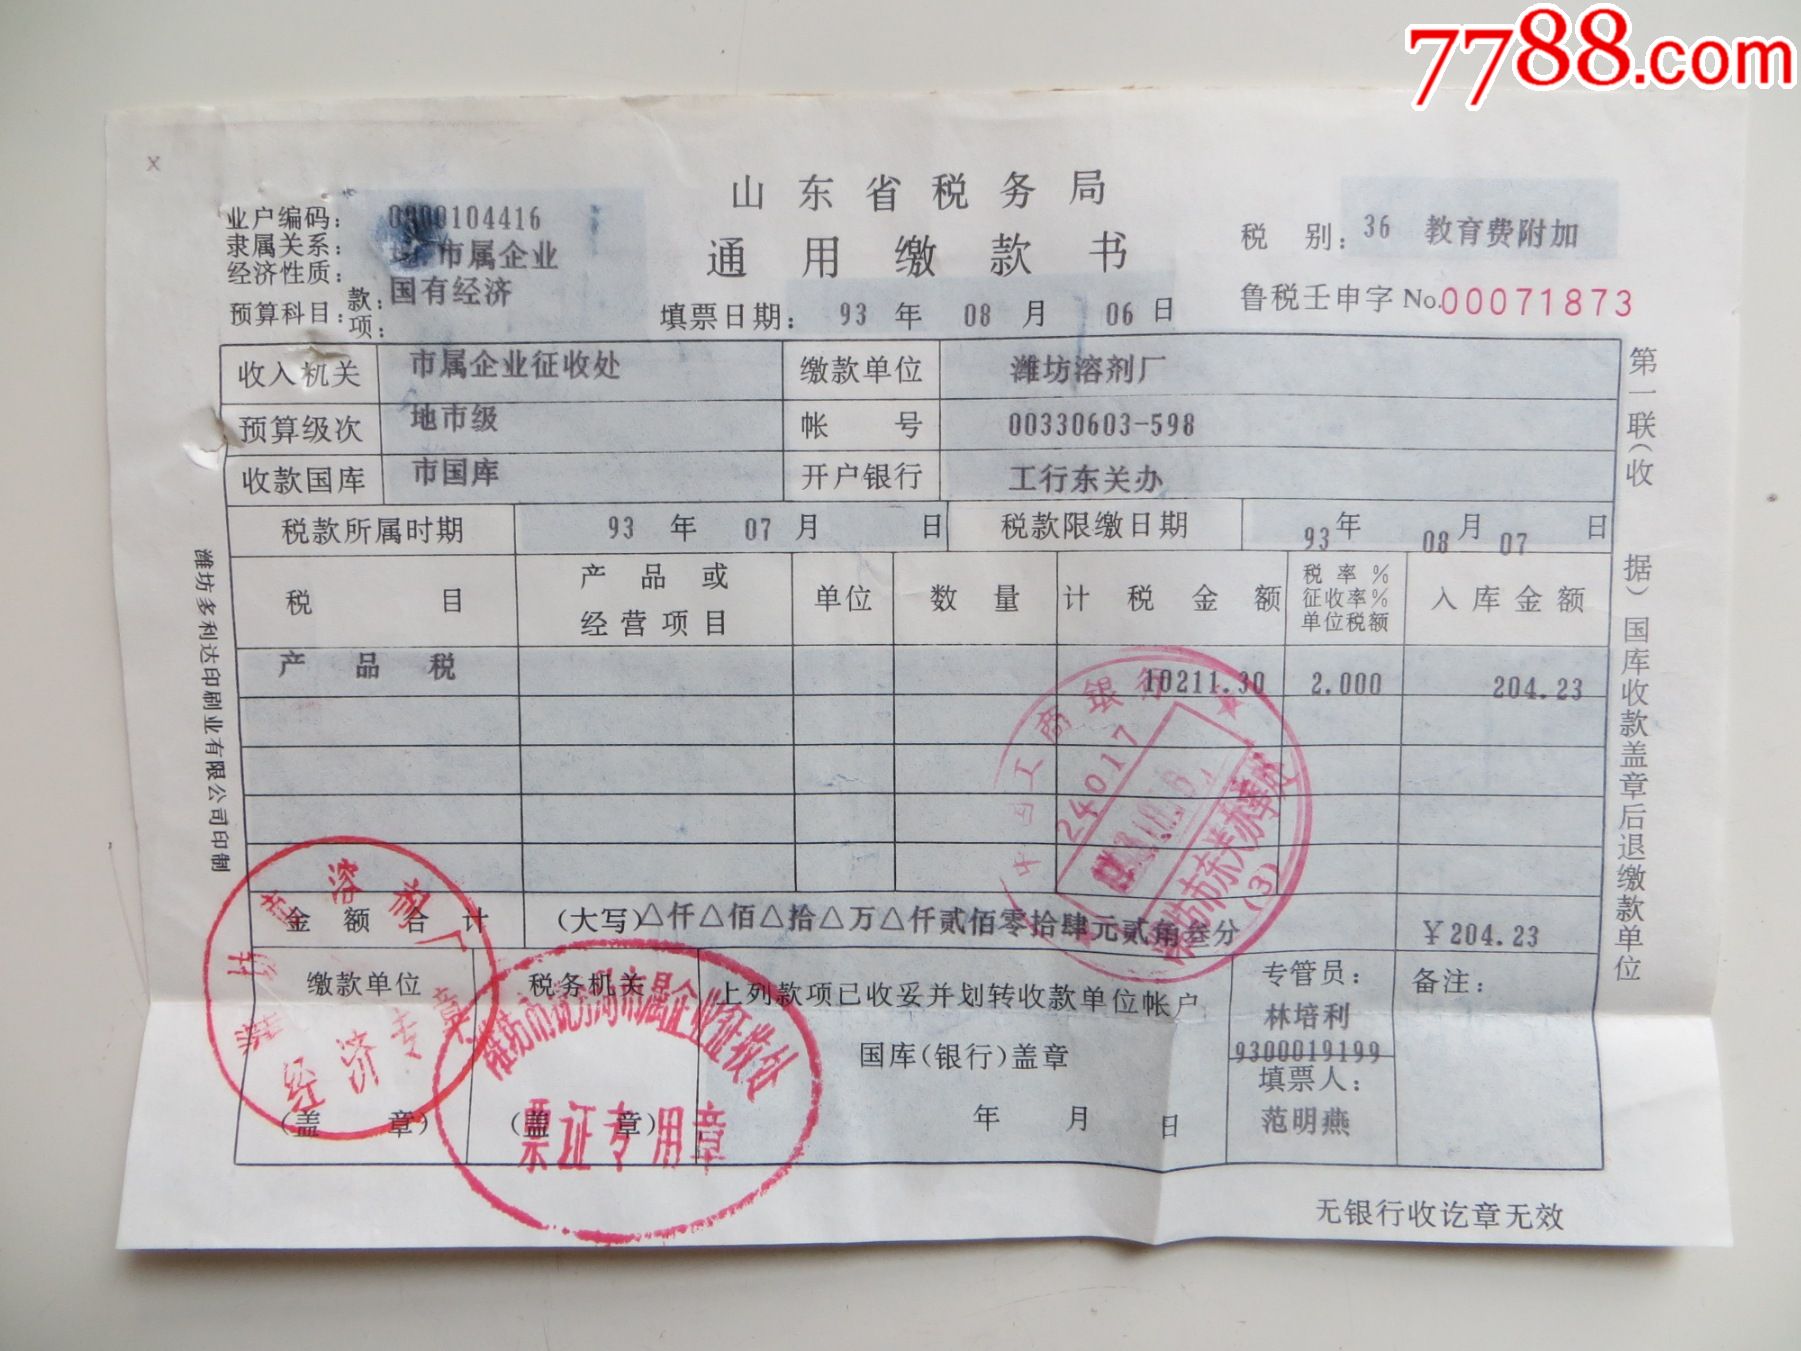 7788.com
山东省税务局
通用缴款书
业户编码：0300104416
隶属关系：市属企业
经济性质：国有经济
预算科目：款：
项：
填票日期：93年08月06日
税别：36 教育费附加
鲁税壬申字No.00071873
收入机关 市属企业征收处 缴款单位 潍坊溶剂厂
预算级次 地市级 帐号 00330603-598
收款国库 市国库 开户银行 工行东关办
税款所属时期 93年07月 日 税款限缴日期 93年08月07日
税目 产品或经营项目 单位 数量 计税金额 税率% 征收率% 单位税额 入库金额
产品税 10211.30 2.000 204.23
金额合计 (大写)△仟△佰△拾△万△仟贰佰零拾肆元贰角叁分 ￥204.23
缴款单位
(盖章)
税务机关
(盖章)
上列款项已收妥并划转收款单位帐户
国库(银行)盖章
年 月 日
专管员：
林培利
9300019199
填票人：
范明燕
备注：
无银行收讫章无效
第一联(收据)国库收款盖章后退缴款单位
潍坊多利达印刷业有限公司印制
潍坊市溶剂厂
经济专章
潍坊市税务局市属企业征收处
票证专用章
中国工商银行
24017
潍坊市东关办事处
(3)